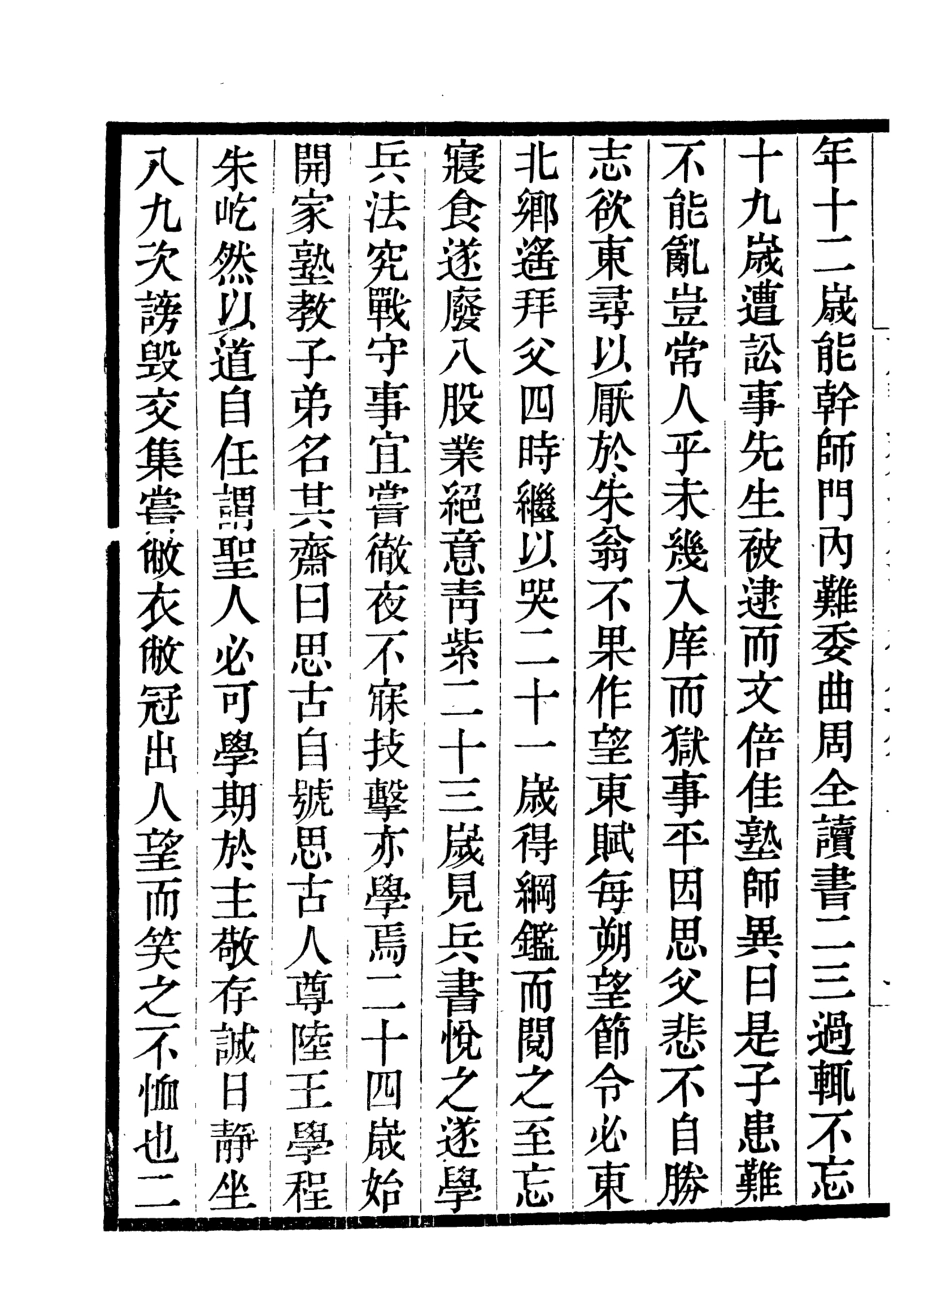 年十二歲能幹師門內難委曲周全讀書二三過輒不忘
十九歲遭訟事先生被逮而文倍佳塾師異曰是子患難
不能亂豈常人乎未幾入庠而獄事平因思父悲不自勝
志欲東尋以厭於朱翁不果作望東賦每朔望節令必東
北鄉遙拜父四時繼以哭二十一歲得綱鑑而閱之至忘
寢食遂廢八股業絕意青紫二十三歲見兵書悅之遂學
兵法究戰守事宜嘗徹夜不寐技擊亦學焉二十四歲始
開家塾教子弟名其齋曰思古自號思古人尊陸王學程
朱屹然以道自任謂聖人必可學期於主敬存誠日靜坐
八九次謗毀交集嘗敝衣敝冠出人望而笑之不恤也二